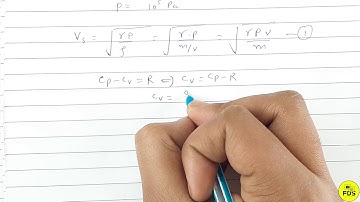 P = 10⁵ Pa
Vs = √(γP/ρ) = √(γ·P/(m/V)) = √(γPV/m) — ①
Cp-Cv = R ⇔ Cv = Cp-R
Cv =
FDS